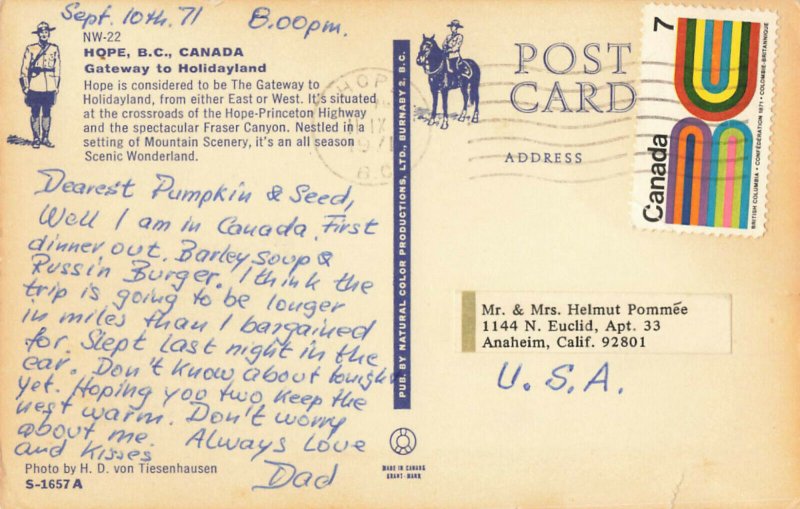 Sept. 10th. 71 8.00pm.
NW-22
HOPE, B.C., CANADA
Gateway to Holidayland
Hope is considered to be The Gateway to
Holidayland, from either East or West. It's situated
at the crossroads of the Hope-Princeton Highway
and the spectacular Fraser Canyon. Nestled in a
setting of Mountain Scenery, it's an all season
Scenic Wonderland.
Dearest Pumpkin & Seed,
Well I am in Canada. First
dinner out. Barley Soup &
Russin Burger. I think the
trip is going to be longer
in miles than I bargained
for. Slept last night in the
car. Don't know about tonight
yet. Hoping you two keep the
nest warm. Don't worry
about me. Always Love
and Kisses
Dad
Photo by H. D. von Tiesenhausen
S-1657 A
PUB. BY NATURAL COLOR PRODUCTIONS, LTD., BURNABY 2, B.C.
MADE IN CANADA
GRANT-MANN
POST
CARD
ADDRESS
HOPE
IX
1971
B.C.
7
Canada
BRITISH COLUMBIA • CONFEDERATION 1871 • COLOMBIE-BRITANNIQUE
Mr. & Mrs. Helmut Pommée
1144 N. Euclid, Apt. 33
Anaheim, Calif. 92801
U.S.A.